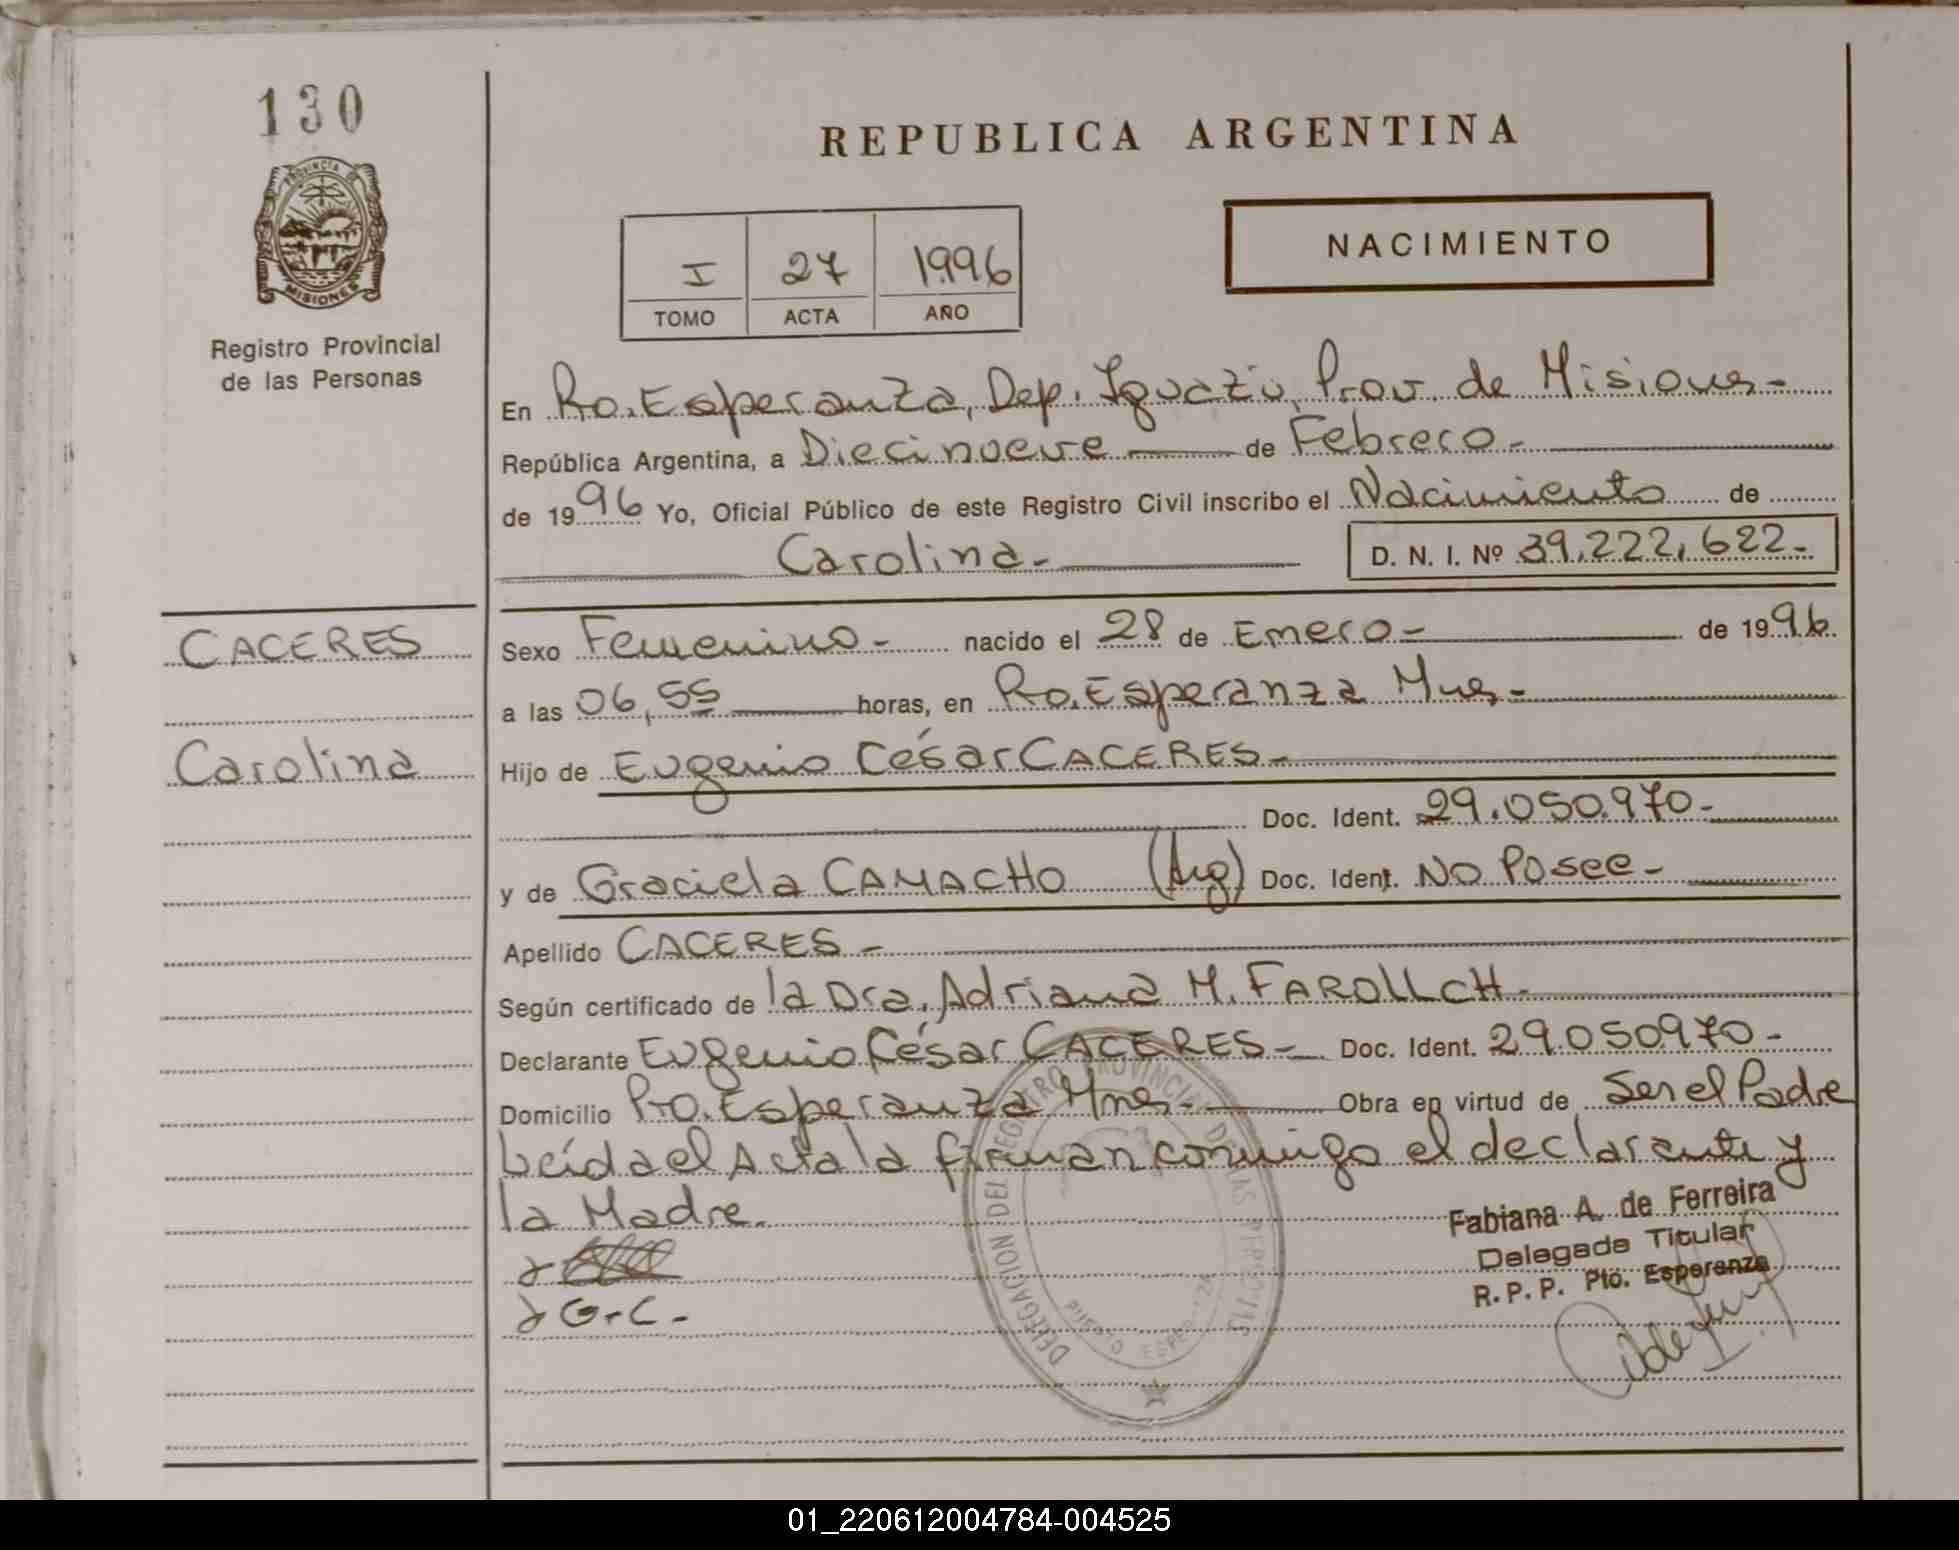 130
PROVINCIA DE
MISIONES
Registro Provincial
de las Personas
REPUBLICA ARGENTINA
I 27 1996
TOMO ACTA AÑO
NACIMIENTO
En Pto. Esperanza, Dep. Iguazú, Prov. de Misiones-
República Argentina, a Diecinueve de Febrero-
de 1996 Yo, Oficial Público de este Registro Civil inscribo el Nacimiento de
Carolina- D. N. I. Nº 39.222.622-
CACERES
Carolina
Sexo Femenino- nacido el 28 de Enero- de 1996
a las 06,55 horas, en Pto. Esperanza Mnes-
Hijo de Eugenio César CACERES-
Doc. Ident. 29.050.970-
y de Graciela CAMACHO (Arg) Doc. Ident. No Posee-
Apellido CACERES-
Según certificado de la Dra. Adriana M. FAROLLCH-
Declarante Eugenio César CACERES- Doc. Ident. 29.050970-
Domicilio Pto. Esperanza Mnes- Obra en virtud de Ser el Padre
Leída el Acta la firman conmigo el declarante y
la Madre.
G.C.-
DELEGACION DEL REGISTRO PROVINCIAL DE LAS PERSONAS
PUERTO ESPERANZA
Fabiana A. de Ferreira
Delegada Titular
R. P. P. Pto. Esperanza
01_220612004784-004525